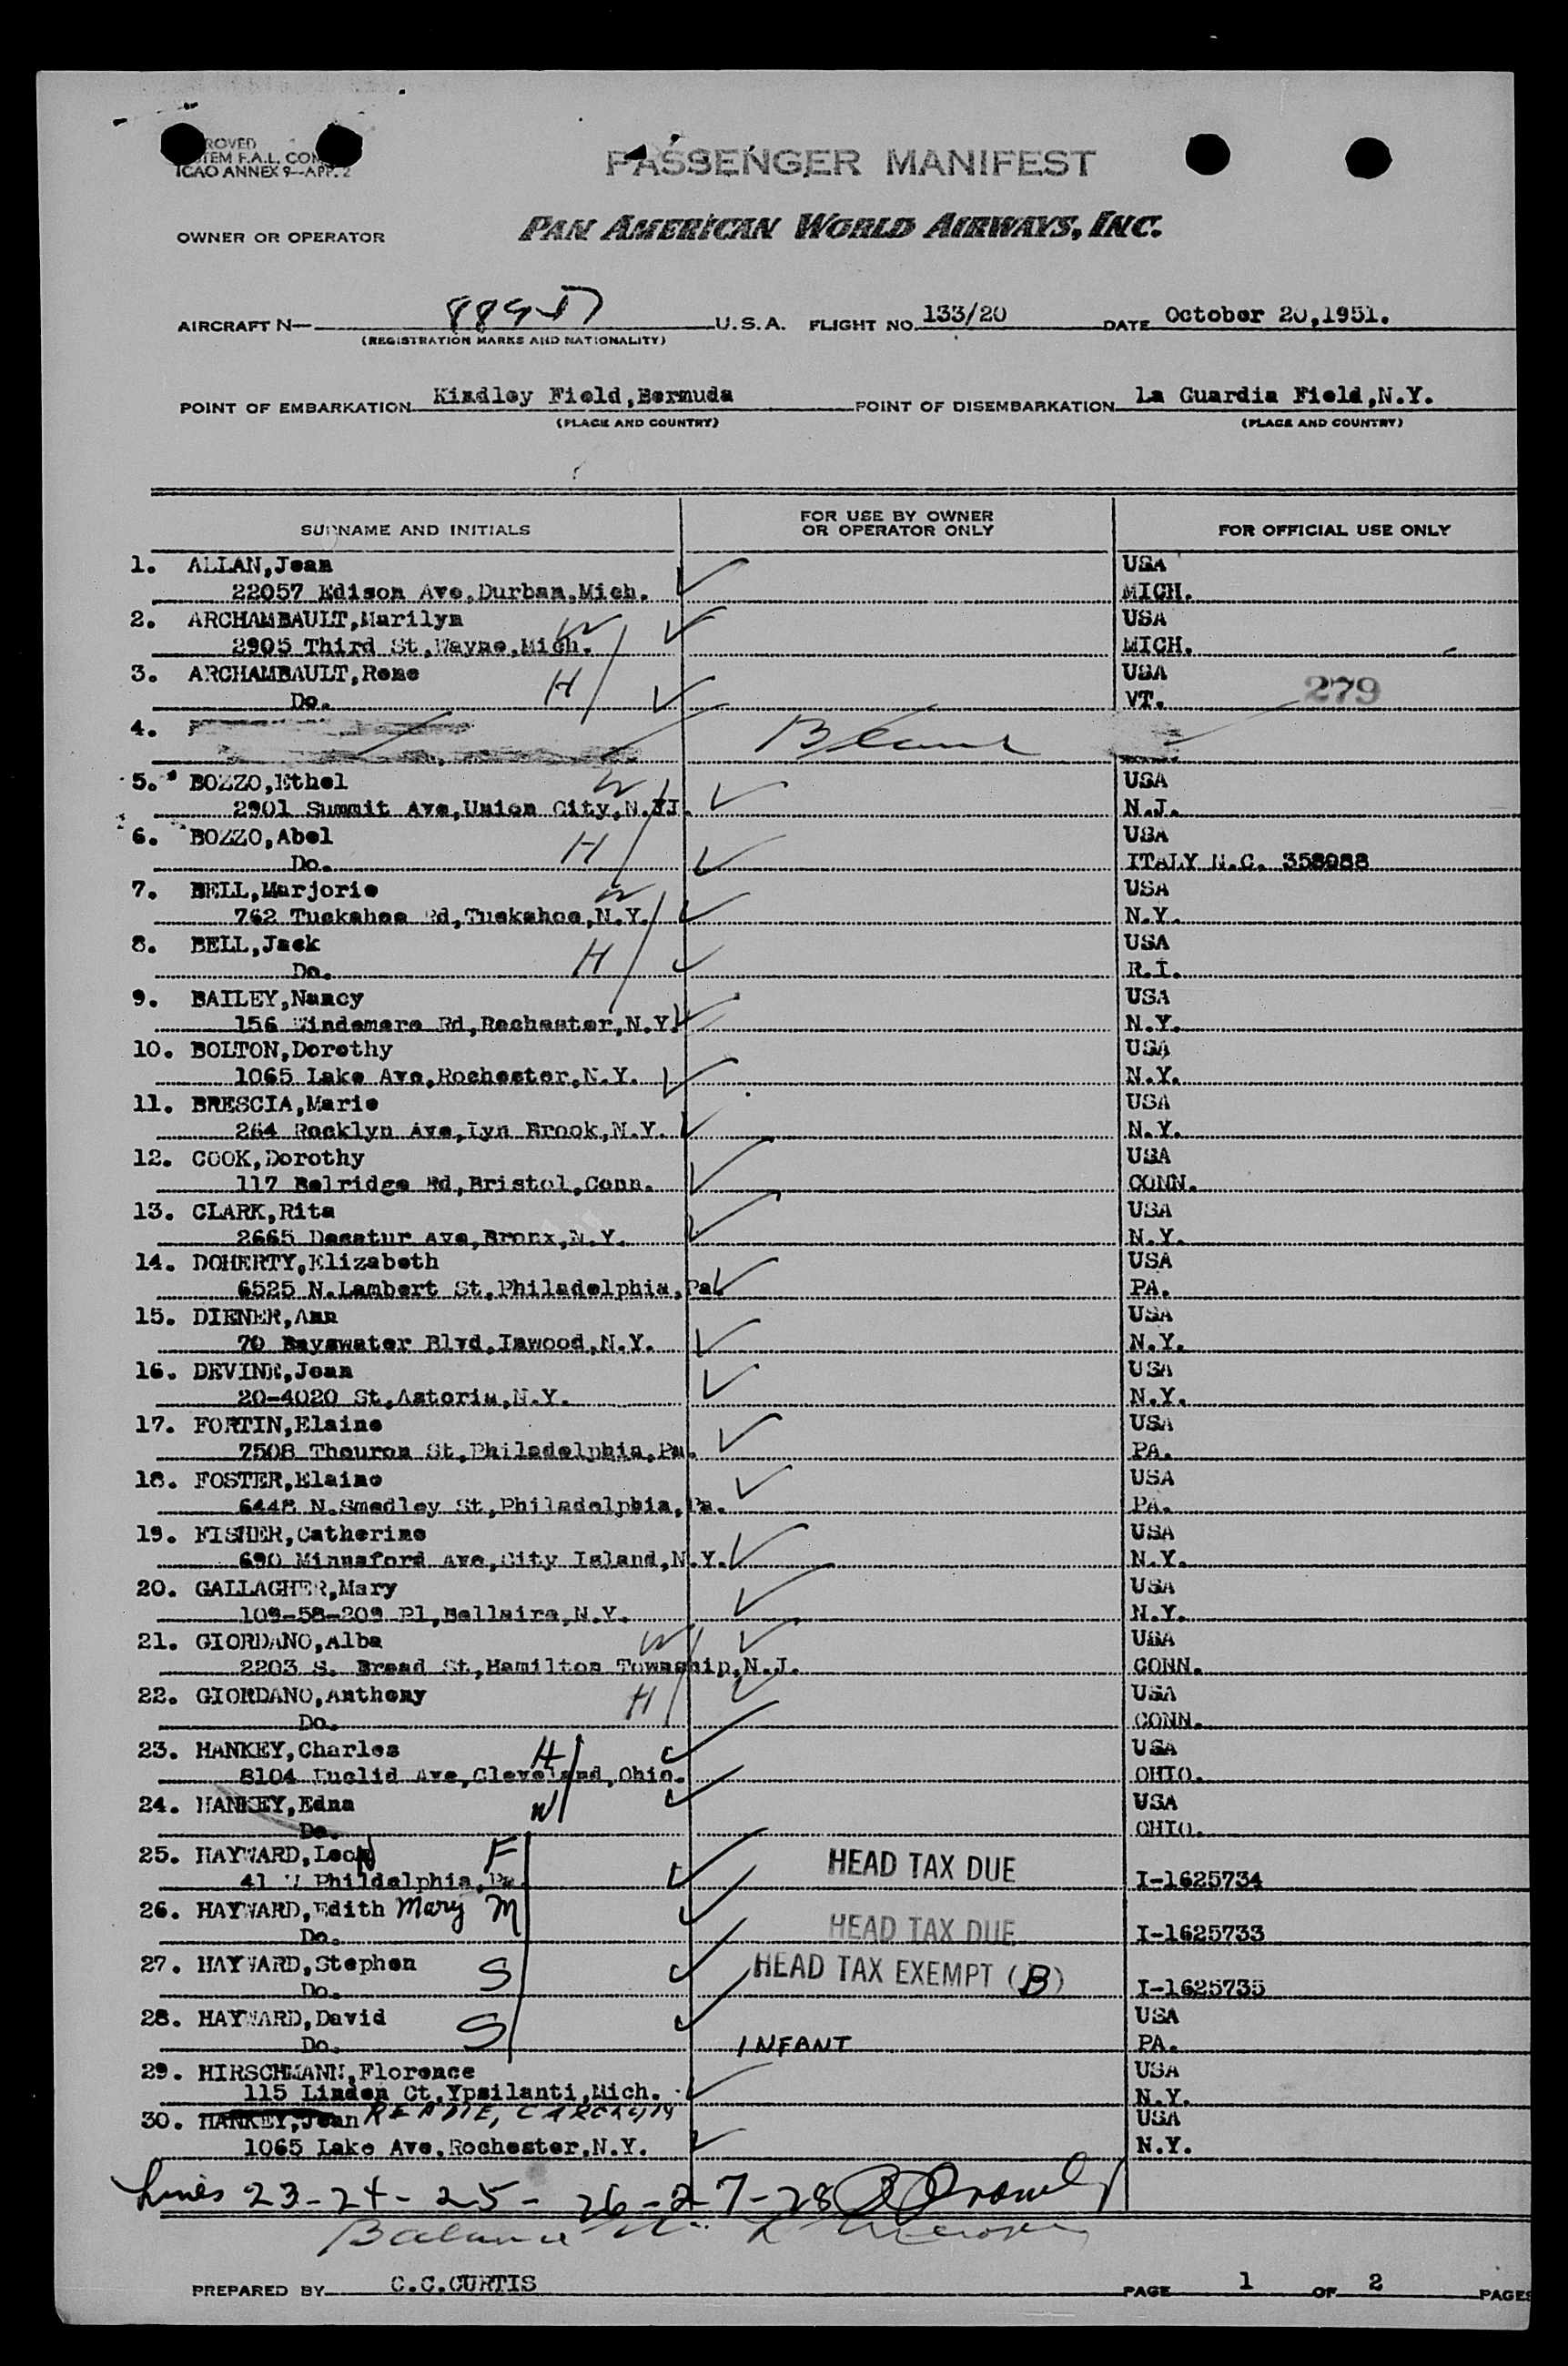 ROVED
TEM F.A.L. COM
ICAO ANNEX 9—APP. 2
PASSENGER MANIFEST
OWNER OR OPERATOR PAN AMERICAN WORLD AIRWAYS, INC.
AIRCRAFT N— U.S.A. FLIGHT NO. 133/20 DATE October 20,1951.
(REGISTRATION MARKS AND NATIONALITY)
POINT OF EMBARKATION Kindley Field,Bermuda POINT OF DISEMBARKATION La Guardia Field,N.Y.
(PLACE AND COUNTRY) (PLACE AND COUNTRY)
SURNAME AND INITIALS FOR USE BY OWNER OR OPERATOR ONLY FOR OFFICIAL USE ONLY
1. ALLAN,Jean USA
22057 Edison Ave,Durban,Mich. MICH.
2. ARCHAMBAULT,Marilyn W USA
2905 Third St,Wayne,Mich. MICH.
3. ARCHAMBAULT,Rene H USA
Do. VT. 279
4. Blank
5. BOZZO,Ethel W USA
2901 Summit Ave,Union City,N.J. N.J.
6. BOZZO,Abel H USA
Do. ITALY N.C. 358988
7. BELL,Marjorie W USA
762 Tuckahoe Rd,Tuckahoe,N.Y. N.Y.
8. BELL,Jack H USA
Do. R.I.
9. BAILEY,Nancy USA
156 Windemere Rd,Rochester,N.Y. N.Y.
10. BOLTON,Dorothy USA
1065 Lake Ave,Rochester,N.Y. N.Y.
11. BRESCIA,Marie USA
264 Rocklyn Ave,Lyn Brook,N.Y. N.Y.
12. COOK,Dorothy USA
117 Belridge Rd,Bristol,Conn. CONN.
13. CLARK,Rita USA
2665 Decatur Ave,Bronx,N.Y. N.Y.
14. DOHERTY,Elizabeth USA
6525 N.Lambert St,Philadelphia,Pa. PA.
15. DIENER,Ann USA
70 Bayswater Blvd,Inwood,N.Y. N.Y.
16. DEVINE,Jean USA
20-4020 St,Astoria,N.Y. N.Y.
17. FORTIN,Elaine USA
7508 Thouron St,Philadelphia,Pa. PA.
18. FOSTER,Elaine USA
6448 N.Smedley St,Philadelphia,Pa. PA.
19. FISHER,Catherine USA
690 Minnaford Ave,City Island,N.Y. N.Y.
20. GALLAGHER,Mary USA
109-58-209 Pl,Bellaire,N.Y. N.Y.
21. GIORDANO,Alba W USA
2203 S. Broad St,Hamilton Township,N.J. CONN.
22. GIORDANO,Anthony H USA
Do. CONN.
23. HANKEY,Charles H USA
8104 Euclid Ave,Cleveland,Ohio. OHIO.
24. HANKEY,Edna W USA
Do. OHIO.
25. HAYWARD,Leon F HEAD TAX DUE
41 W Phildelphia,Pa. I-1625734
26. HAYWARD,Edith Mary M HEAD TAX DUE
Do. I-1625733
27. HAYWARD,Stephen S HEAD TAX EXEMPT (B)
Do. I-1625735
28. HAYWARD,David S USA
Do. INFANT PA.
29. HIRSCHMANN,Florence USA
115 Linden Ct,Ypsilanti,Mich. N.Y.
30. HANKEY,Jean USA
1065 Lake Ave,Rochester,N.Y. N.Y.
Lines 23-24-25-26-27-28
Balance
PREPARED BY C.C.CURTIS PAGE 1 OF 2 PAGES